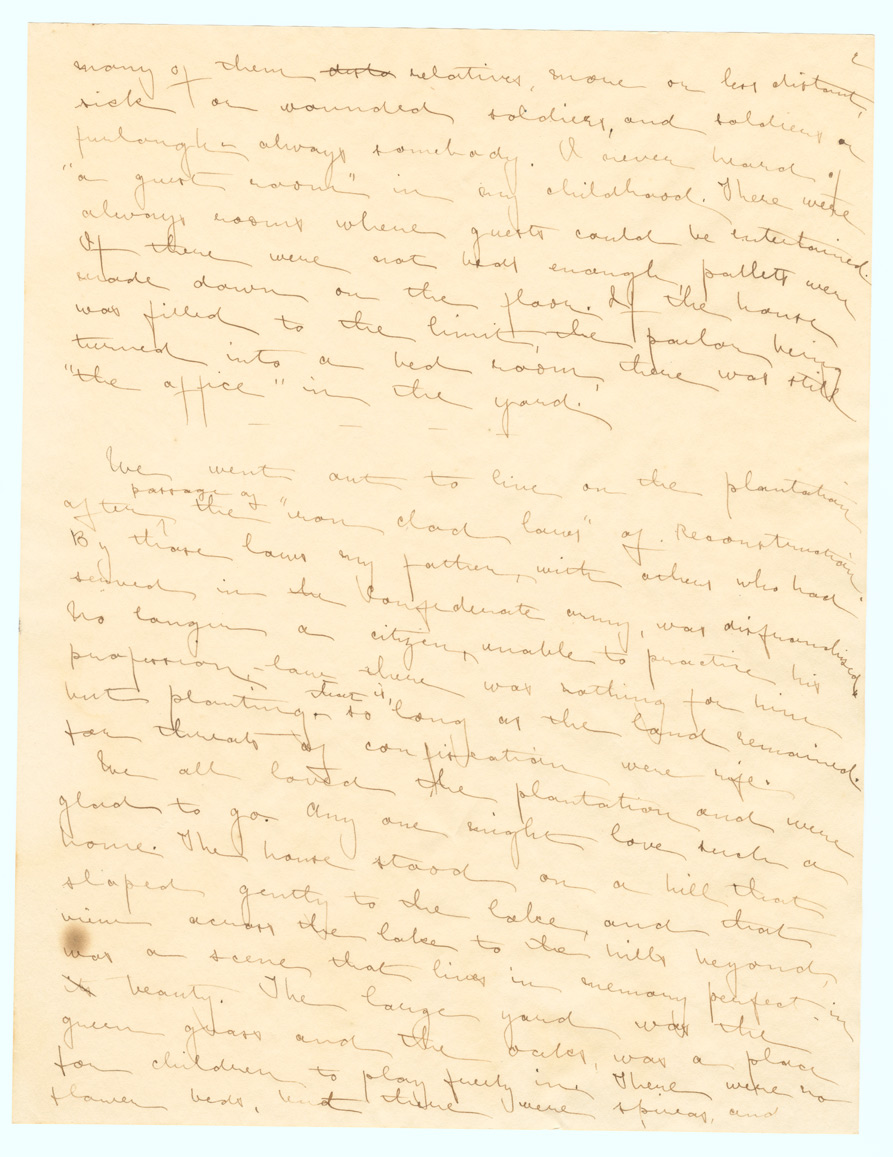 2
many of them disto relatives, more or less distant,
sick or wounded soldiers, and soldiers on
furlough - always somebody. I never heard of
"a guest room" in my childhood. There were
always rooms where guests could be entertained.
If there were not beds enough, pallets were
made down on the floor. If the house
was filled to the limit, the parlor being
turned into a bed room, there was still
"the office" in the yard.
We went out to live on the plantation
passage of
after the "iron clad laws" of Reconstruction.
By those laws my father, with others who had
served in the Confederate army, was disfranchised.
No longer a citizen, unable to practice his
profession, - law - there was nothing for him
but planting - that is, so long as the land remained.
For threats of confiscation were rife.
We all loved the plantation and were
glad to go. Any one might love such a
home. The house stood on a hill that
sloped gently to the lake, and that
view across the lake to the hills beyond,
was a scene that lives in memory perfect in
its beauty. The large yard was the
green grass and the oaks, was a place
for children to play freely in. There were no
flower beds, but there were spireas, and